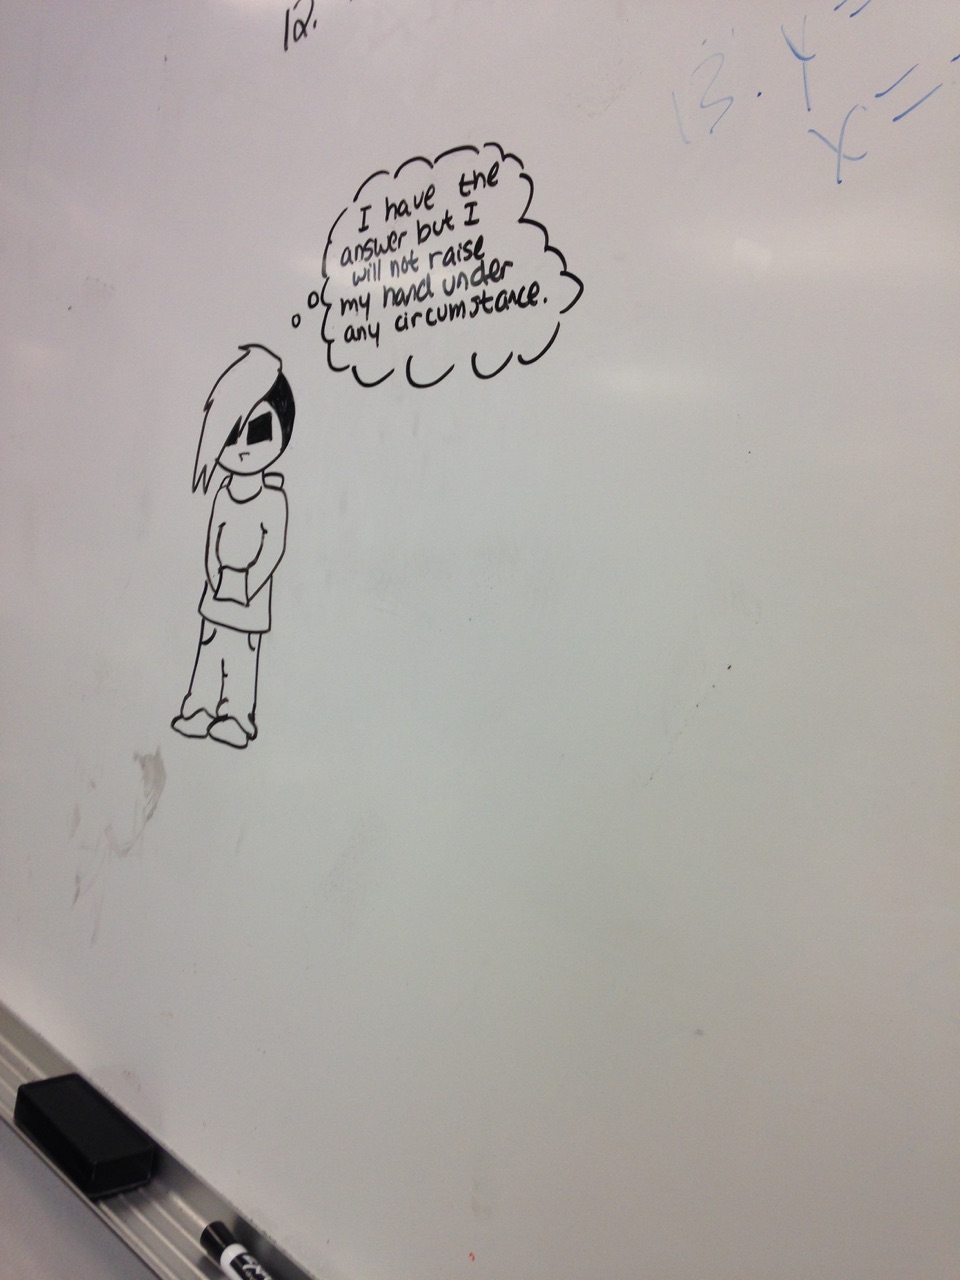 12.
13. Y=
X=
I have the
answer but I
will not raise
my hand under
any circumstance.